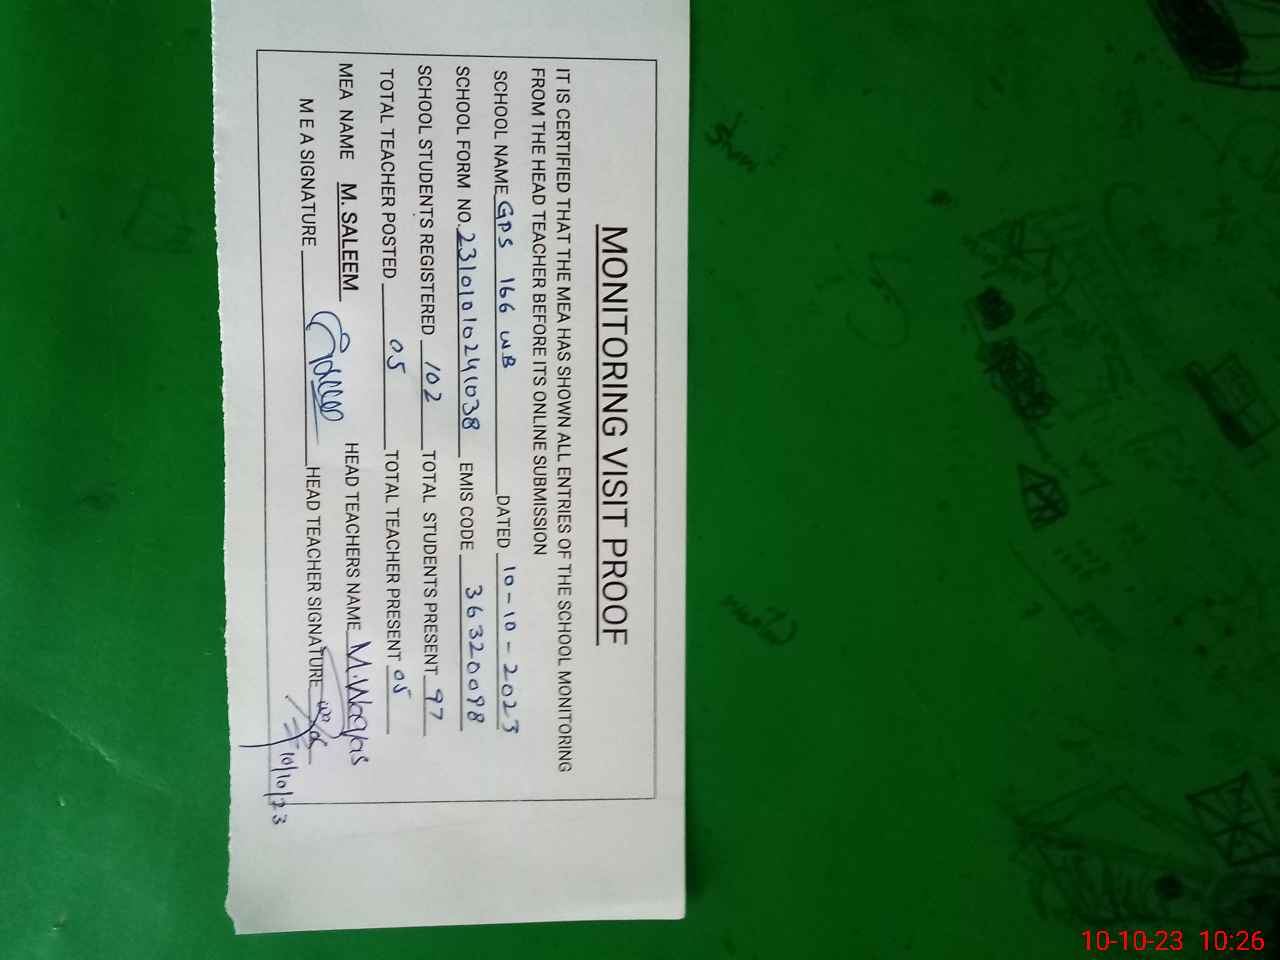 MONITORING VISIT PROOF
IT IS CERTIFIED THAT THE MEA HAS SHOWN ALL ENTRIES OF THE SCHOOL MONITORING
FROM THE HEAD TEACHER BEFORE ITS ONLINE SUBMISSION
SCHOOL NAME GPS 166 WB DATED 10-10-2023
SCHOOL FORM NO. 23101010241038 EMIS CODE 36320098
SCHOOL STUDENTS REGISTERED 102 TOTAL STUDENTS PRESENT 97
TOTAL TEACHER POSTED 05 TOTAL TEACHER PRESENT 05
MEA NAME M. SALEEM HEAD TEACHERS NAME M.Waqas
M E A SIGNATURE HEAD TEACHER SIGNATURE
10/10/23
10-10-23 10:26